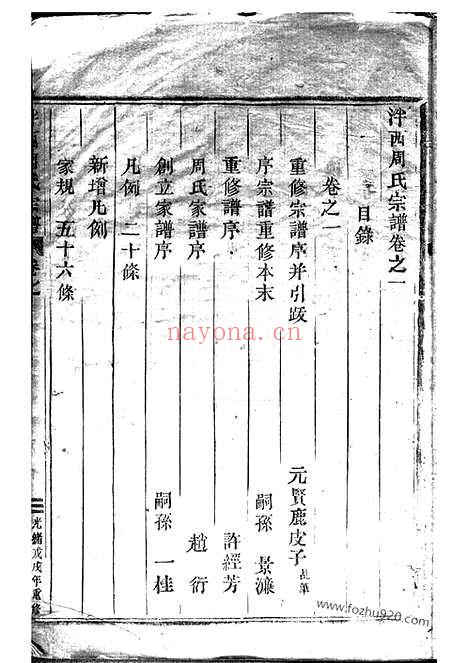 泮西周氏宗譜卷之一
目錄
卷之一
重修宗譜序并引跋 元賢鹿皮子乩筆
序宗譜重修本末 嗣孫 景濂
重修譜序 許經芳
周氏家譜序 趙衍
創立家譜序 嗣孫 一桂
凡例 二十條
新增凡例
家規 五十六條
泮西周氏宗譜 卷之一
光緒戊戌年重修
nayona.cn
www.fozhu920.com